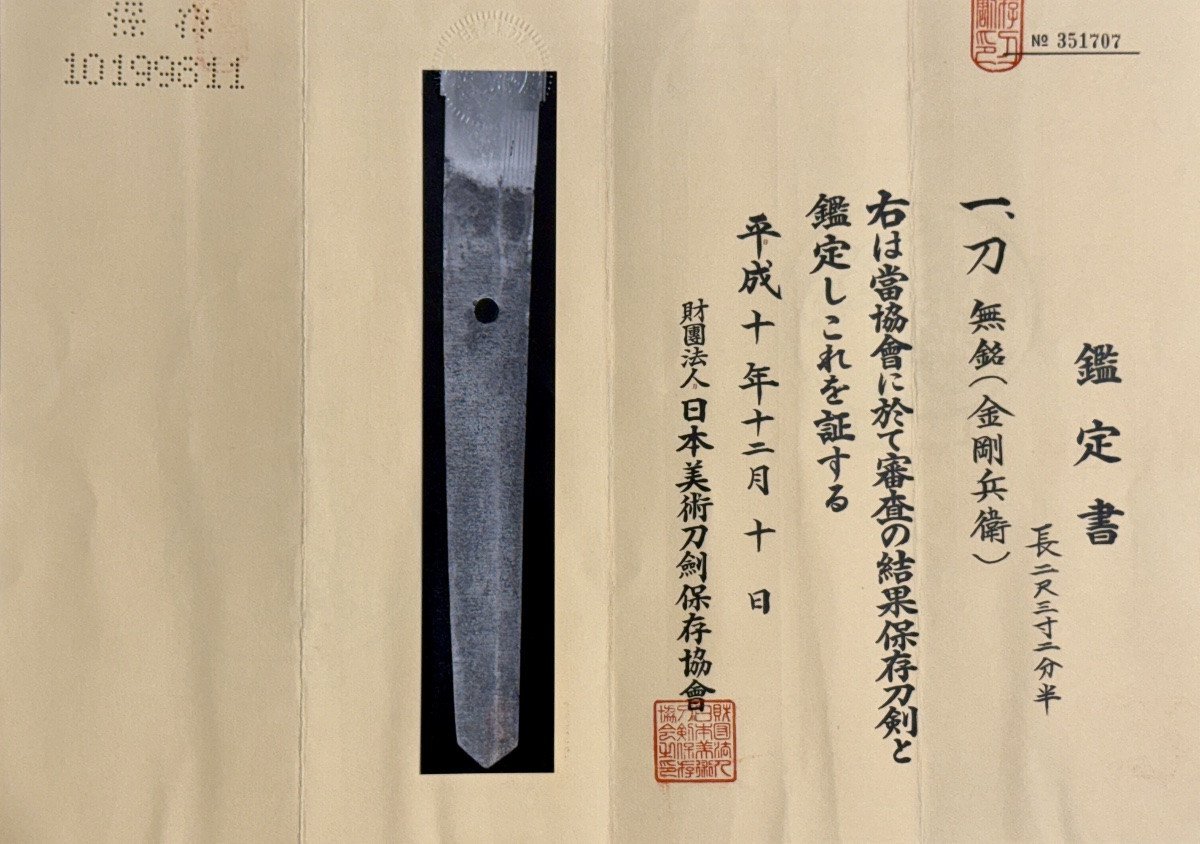 № 351707
鑑定書
長二尺三寸二分半
一、刀 無銘(金剛兵衛)
右は當協會に於て審査の結果保存刀剣と
鑑定しこれを証する
平成十年十二月十日
財團法人日本美術刀劍保存協會
財団法人
日本美術
刀剣保存
協会之印
保存
10199811